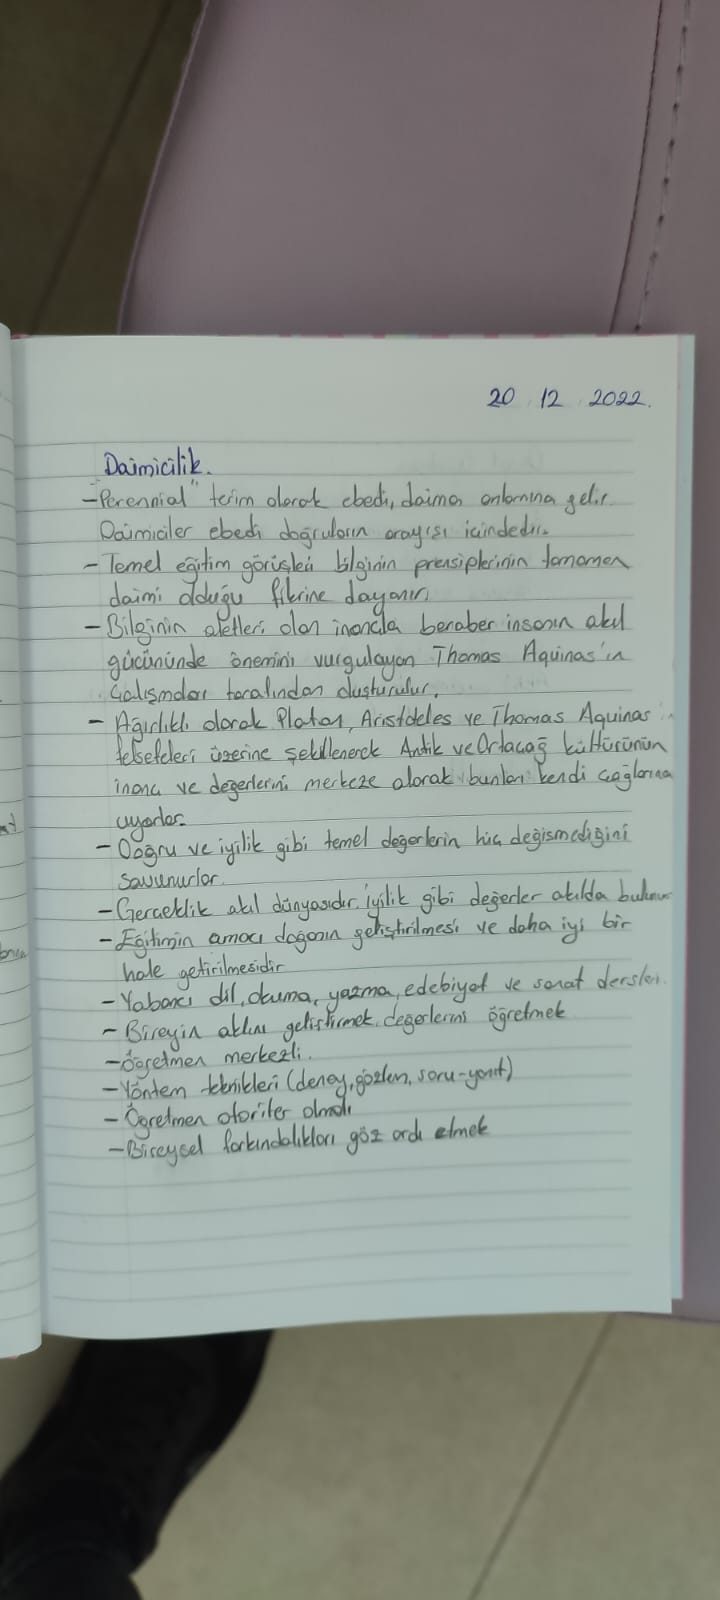 20.12.2022.
Daimicilik.
-"Perennial" terim olarak ebedi, daima anlamına gelir.
Daimiciler ebedi doğruların arayışı içindedir.
- Temel eğitim görüşleri bilginin prensiplerinin tamamen
daimi olduğu fikrine dayanır.
- Bilginin aletleri olan inançla beraber insanın akıl
gücününde önemini vurgulayan Thomas Aquinas'ın
çalışmaları tarafından oluşturulur.
- Ağırlıklı olarak Platon, Aristoteles ve Thomas Aquinas'ın
felsefeleri üzerine şekillenerek Antik ve Ortaçağ kültürünün
inanç ve değerlerini merkeze alarak bunları kendi çağlarına
uyarlar.
- Doğru ve iyilik gibi temel değerlerin hiç değişmediğini
savunurlar.
- Gerçeklik akıl dünyasıdır. İyilik gibi değerler akılda bulunur
- Eğitimin amacı doğanın geliştirilmesi ve daha iyi bir
hale getirilmesidir
- Yabancı dil, okuma, yazma, edebiyat ve sanat dersleri.
- Bireyin aklını geliştirmek, değerlerini öğretmek
- Öğretmen merkezli.
- Yöntem teknikleri (deney, gözlem, soru-yanıt)
- Öğretmen otoriter olmalı
- Bireysel farkındalıkları göz ardı etmek